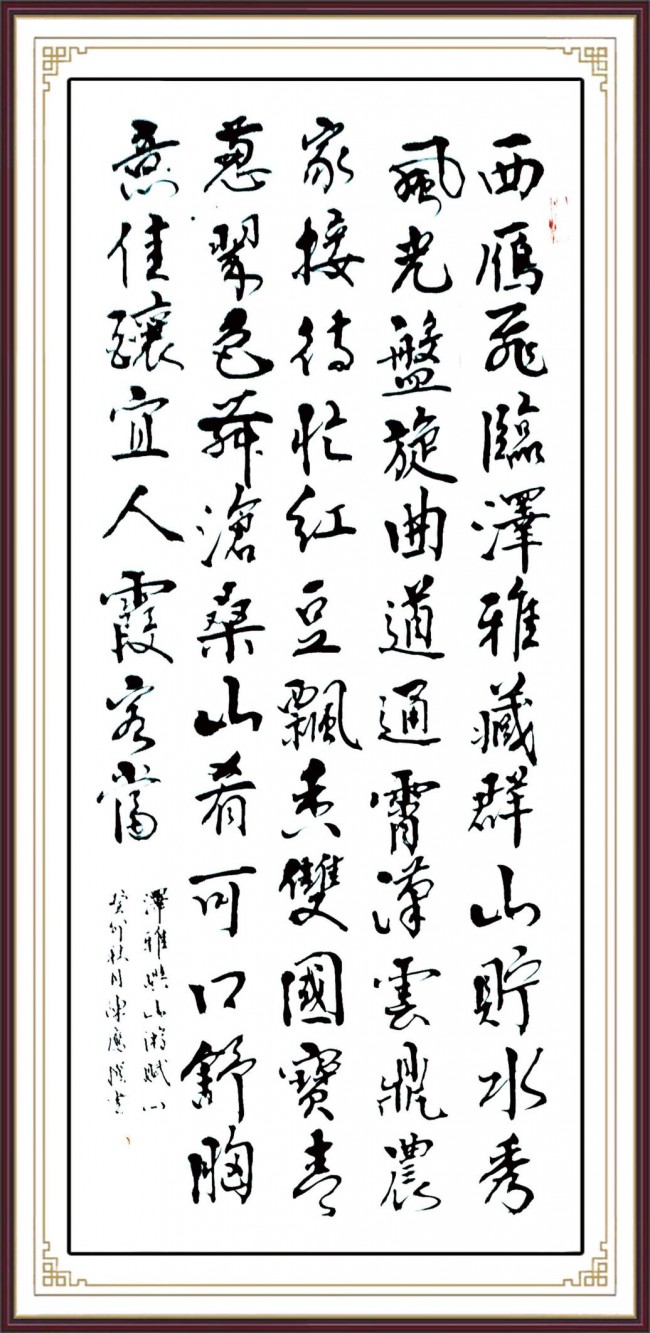 西雁飛臨澤雅藏群山貯水秀
風光盤旋曲道通霄漢雲鼎農
家接待忙紅豆飄香雙國寶青
蔥翠色舞滄桑山肴可口舒胸
意佳釀宜人霞客當
澤雅 山游賦
癸卯秋月陳應撰書